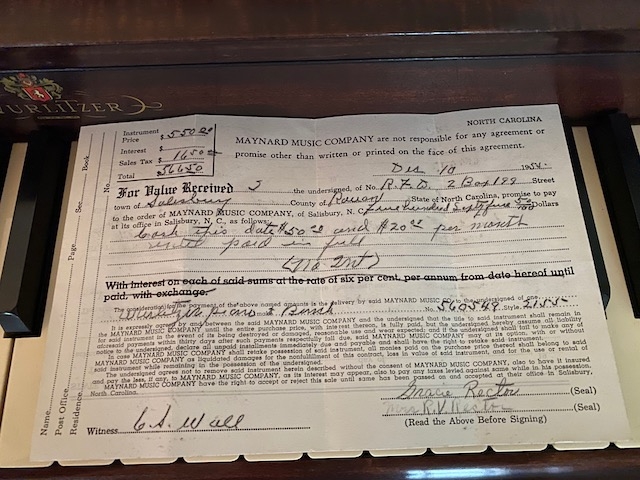 WURLITZER
NORTH CAROLINA
Instrument Price $ 550.00
Interest $
Sales Tax $ 16.50
Total $566.50
MAYNARD MUSIC COMPANY are not responsible for any agreement or
promise other than written or printed on the face of this agreement.
Dec 10 1954
For Value Received I the undersigned, of No. R.F.D. 2 Box 199 Street
town of Salesbury County of Rowan State of North Carolina, promise to pay
to the order of MAYNARD MUSIC COMPANY, of Salisbury, N. C., five hundred Sixty five 50/100 Dollars
at its office in Salisbury, N. C., as follows:
Cash this date $50.00 and $20.00 per month
until paid in full
(No Int)
With interest on each of said sums at the rate of six per cent, per annum from date hereof until
paid, with exchange.
The consideration for the payment of the above named amounts is the delivery by said MAYNARD MUSIC CO. to the undersigned of one
Wurlitzer piano & Bench No. 560549 Style
It is expressly agreed by and between the said MAYNARD MUSIC COMPANY and the undersigned that the title to said instrument shall remain
in MAYNARD MUSIC COMPANY until the entire purchase price, with interest thereon, is fully paid, but the undersigned hereby assume all liability
for said instrument in the event of its being destroyed or damaged, reasonable use and wear excepted; and if the undersigned shall fail to make any of
aforesaid payments within thirty days after such payments respectfully fall due, said MAYNARD MUSIC COMPANY may at its option, with or without
notice to the undersigned, declare all unpaid instalments immediately due and payable and shall have the right to retake said instrument.
In case MAYNARD MUSIC COMPANY shall retake possession of said instrument, all monies paid on the purchase price thereof shall belong to said
MAYNARD MUSIC COMPANY as liquidated damages for the nonfulfillment of this contract, loss in value of said instrument, and for the use or rental of
said instrument while remaining in the possession of the undersigned.
The undersigned agrees not to remove said instrument herein described without the consent of MAYNARD MUSIC COMPANY, also to have it insured
and the loss, if any, to MAYNARD MUSIC COMPANY, as its interest may appear, also to pay any taxes levied against same while in his possession.
MAYNARD MUSIC COMPANY have the right to accept or reject this sale until same has been passed on and accepted at their office in Salisbury,
North Carolina.
Gracie Rector (Seal)
Mrs R.V. (Seal)
(Read the Above Before Signing)
Witness C.S. Wall
No.
Book
Sec.
Page
Name
Post Office
Residence